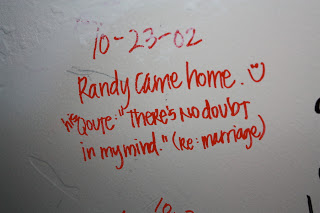 10-23-02
Randy came home. ☺
his Qoute: "There's NO doubt
in my mind." (re: marriage)